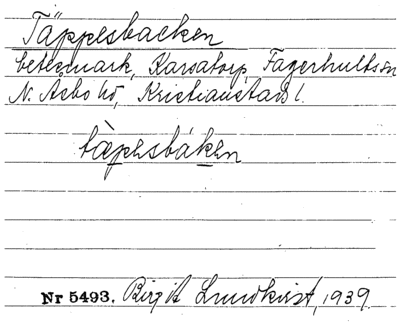 Täppesbacken
betesmark, Karsatorp, Fagerhults sn
N. Åsbo hd, Kristianstads l.
tæ̀pesbáken
Nr 5493. Birgit Lundkvist, 1939.